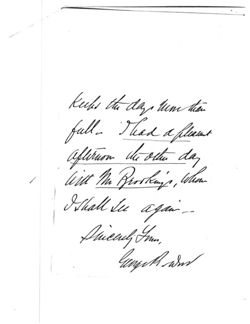 Keeps the days more than
full – I had a pleasant
afternoon the other day
with Mr Brookings, whom
I shall see again –
Sincerely Yours,
George